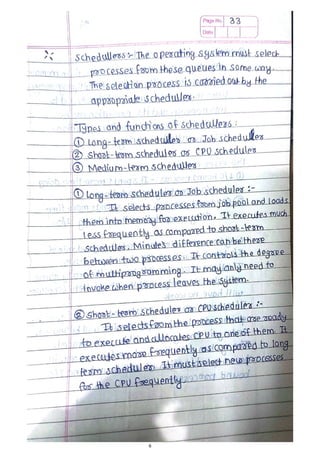 Page No. 33
Date
Schedullers :- The operating system must select
processes from these queues in some way.
The selection process is carried out by the
appropriate scheduller.
Types and functions of schedullers :
① Long-term scheduller or Job scheduller
② Short-term scheduler or CPU scheduler
③ Medium-term scheduller
① Long-term scheduler or Job scheduler :-
It selects processes from job pool and loads
them into memory for execution. It executes much
less frequently as compared to short-term
scheduler. Minutes difference can be there
between two processes. It controls the degree
of multiprogramming. It may only need to
invoke when process leaves the system.
② Short-term scheduler or CPU scheduler :-
It selects from the process that are ready
to execute and allocates CPU to one of them. It
executes more frequently as compared to long
term scheduler. It must select new processes
for the CPU frequently.